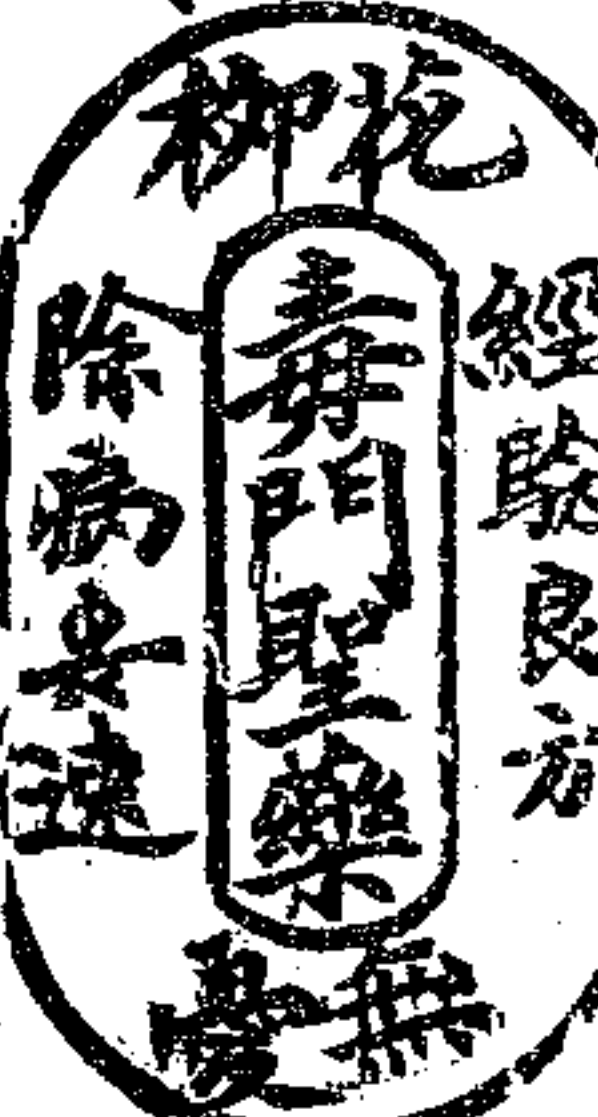 杭柳
經驗良方
毒門聖藥
除病安速
無憂